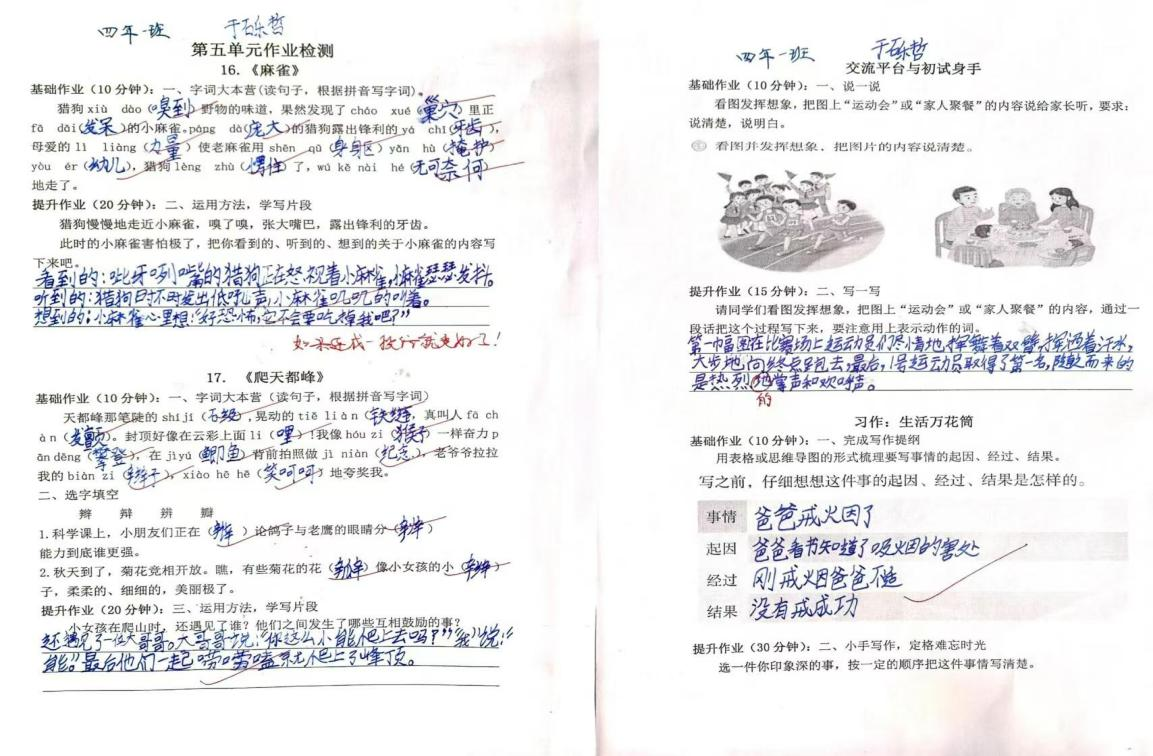 四年一班 于砾哲
第五单元作业检测
16.《麻雀》
基础作业（10分钟）：一、字词大本营(读句子，根据拼音写字词)。
猎狗xiù dào（嗅到）野物的味道，果然发现了cháo xué（巢穴）里正
fā dāi(发呆)的小麻雀。páng dà(庞大)的猎狗露出锋利的yá chǐ(牙齿)，
母爱的lì liàng（力量）使老麻雀用shēn qū（身躯）yǎn hù（掩护）
yòu ér（幼儿），猎狗lèng zhù（愣住）了，wú kě nài hé（无可奈何）
地走了。
提升作业（20分钟）：二、运用方法，学写片段
猎狗慢慢地走近小麻雀，嗅了嗅，张大嘴巴，露出锋利的牙齿。
此时的小麻雀害怕极了，把你看到的、听到的、想到的关于小麻雀的内容写
下来吧。
看到的：呲牙咧嘴的猎狗正在怒视着小麻雀，小麻雀瑟瑟发抖。
听到的：猎狗时不时发出低吼声，小麻雀叽叽的叫着。
想到的：小麻雀心里想：“好恐怖，它不会要吃掉我吧？”
如果连成一段行就更好了！
17. 《爬天都峰》
基础作业（10分钟）：一、字词大本营（读句子，根据拼音写字词）
天都峰那笔陡的shí jí（石级），晃动的tiě liàn（铁链），真叫人fā ch
àn（发颤）。封顶好像在云彩上面li（哩）!我像hóu zi（猴子）一样奋力p
ān dēng（攀登），在jì yú（鲫鱼）背前拍照做jì niàn（纪念），老爷爷拉拉
我的biàn zi（辫子），xiào hē hē（笑呵呵）地夸奖我。
二、选字填空
辫 辩 辨 瓣
1.科学课上，小朋友们正在（辩）论鸽子与老鹰的眼睛分（辨）
能力到底谁更强。
2.秋天到了，菊花竞相开放。瞧，有些菊花的花（瓣）像小女孩的小（辫）
子，柔柔的、细细的，美丽极了。
提升作业（20分钟）：三、运用方法，学写片段
小女孩在爬山时，还遇见了谁？他们之间发生了哪些互相鼓励的事？
还遇见了一位大哥哥。大哥哥说：“你这么小能爬上去吗？”“我”说：“
能。”最后他们一起唠唠嗑就爬上了峰顶。
四年一班 于砾哲
交流平台与初试身手
基础作业（10分钟）：一、说一说
看图发挥想象，把图上“运动会”或“家人聚餐”的内容说给家长听，要求：
说清楚，说明白。
看图并发挥想象，把图片的内容说清楚。
提升作业（15分钟）：二、写一写
请同学们看图发挥想象，把图上“运动会”或“家人聚餐”的内容，通过一
段话把这个过程写下来，要注意用上表示动作的词。
第一幅图在比赛场上运动员们尽情地，挥舞着双臂，挥洒着汗水，
大步地向终点跑去，最后，1号运动员取得了第一名，随之而来的
是热烈地掌声和欢呼声。
的
习作：生活万花筒
基础作业（10分钟）：一、完成写作提纲
用表格或思维导图的形式梳理要写事情的起因、经过、结果。
写之前，仔细想想这件事的起因、经过、结果是怎样的。
事情 爸爸戒火因了
起因 爸爸看书知道了吸火因的害处
经过 刚戒烟爸爸不
结果 没有戒成功
提升作业（30分钟）：二、小手写作，定格难忘时光
选一件你印象深的事，按一定的顺序把这件事情写清楚。